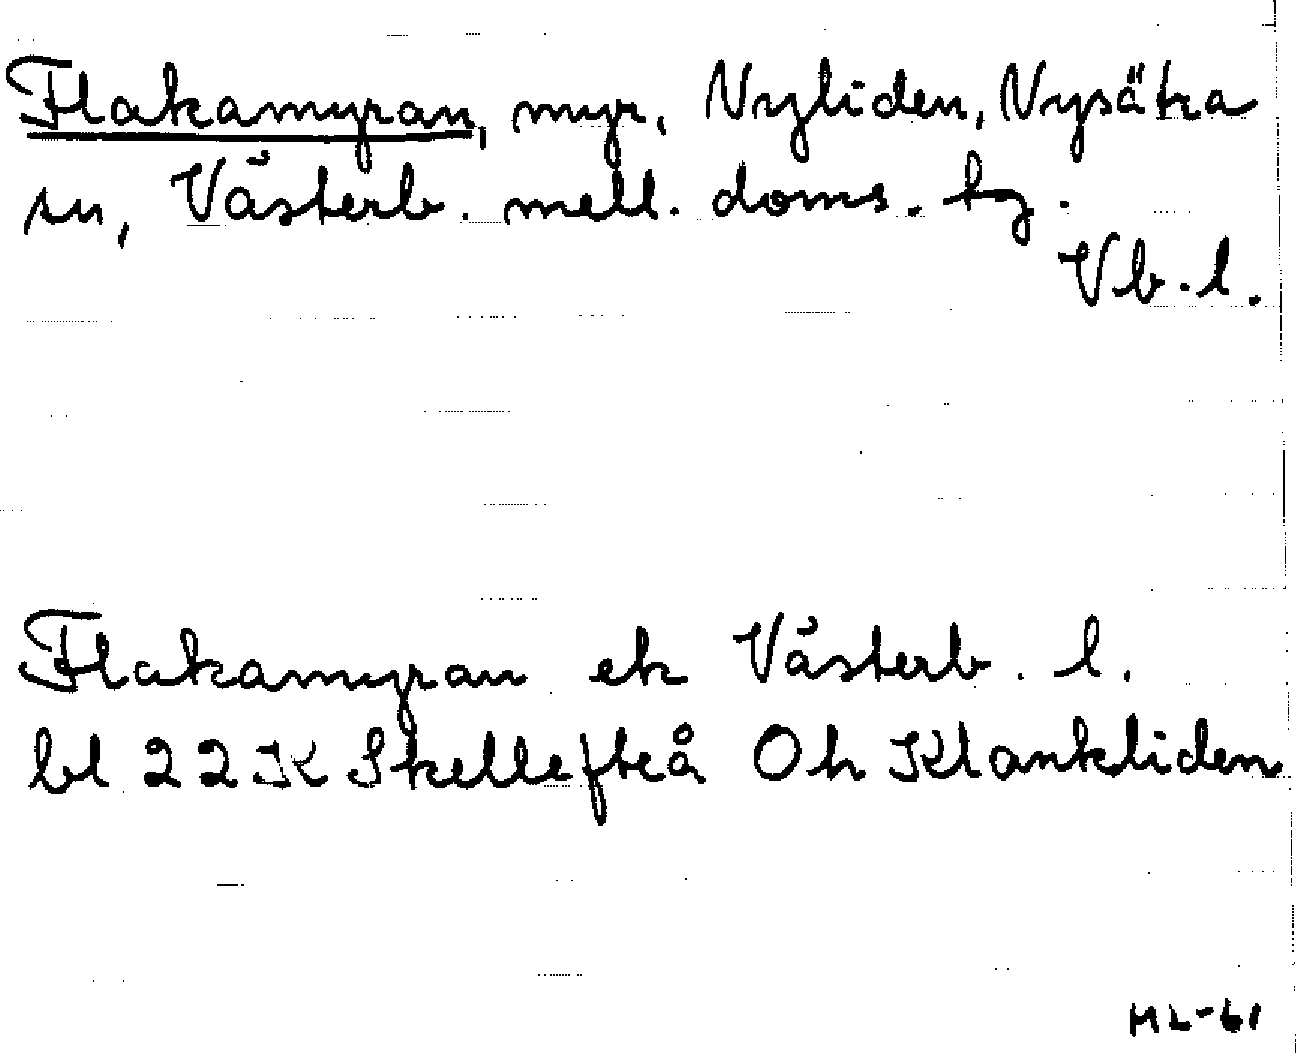 Flakamyran, myr, Nyliden, Nysätra
sn, Västerb. mell. doms. tg.
Vb.l.
Flakamyran ek Västerb. l.
bl 22K Skellefteå Oh Klankliden
HL-61